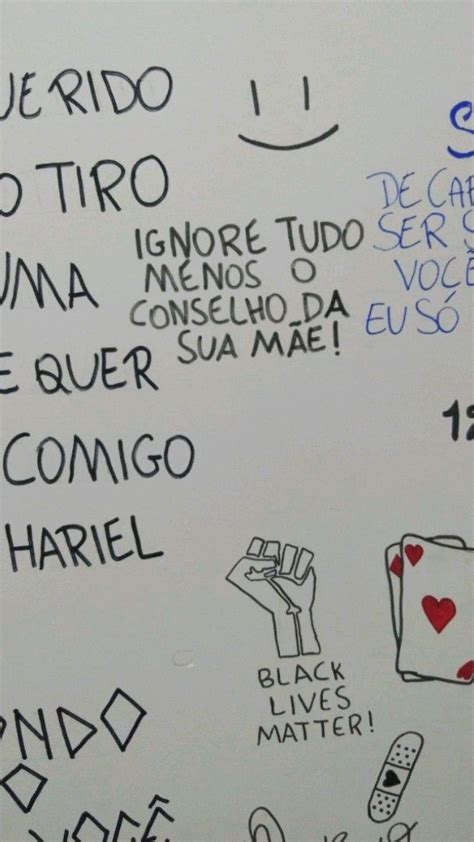 UERIDO
O TIRO
UMA
E QUER
COMIGO
HARIEL
IGNORE TUDO
MENOS O
CONSELHO DA
SUA MÃE!
S
DE CAB
SER S
VOCÊ
EU SÓ
12
BLACK
LIVES
MATTER!
NDO
VOCÊ